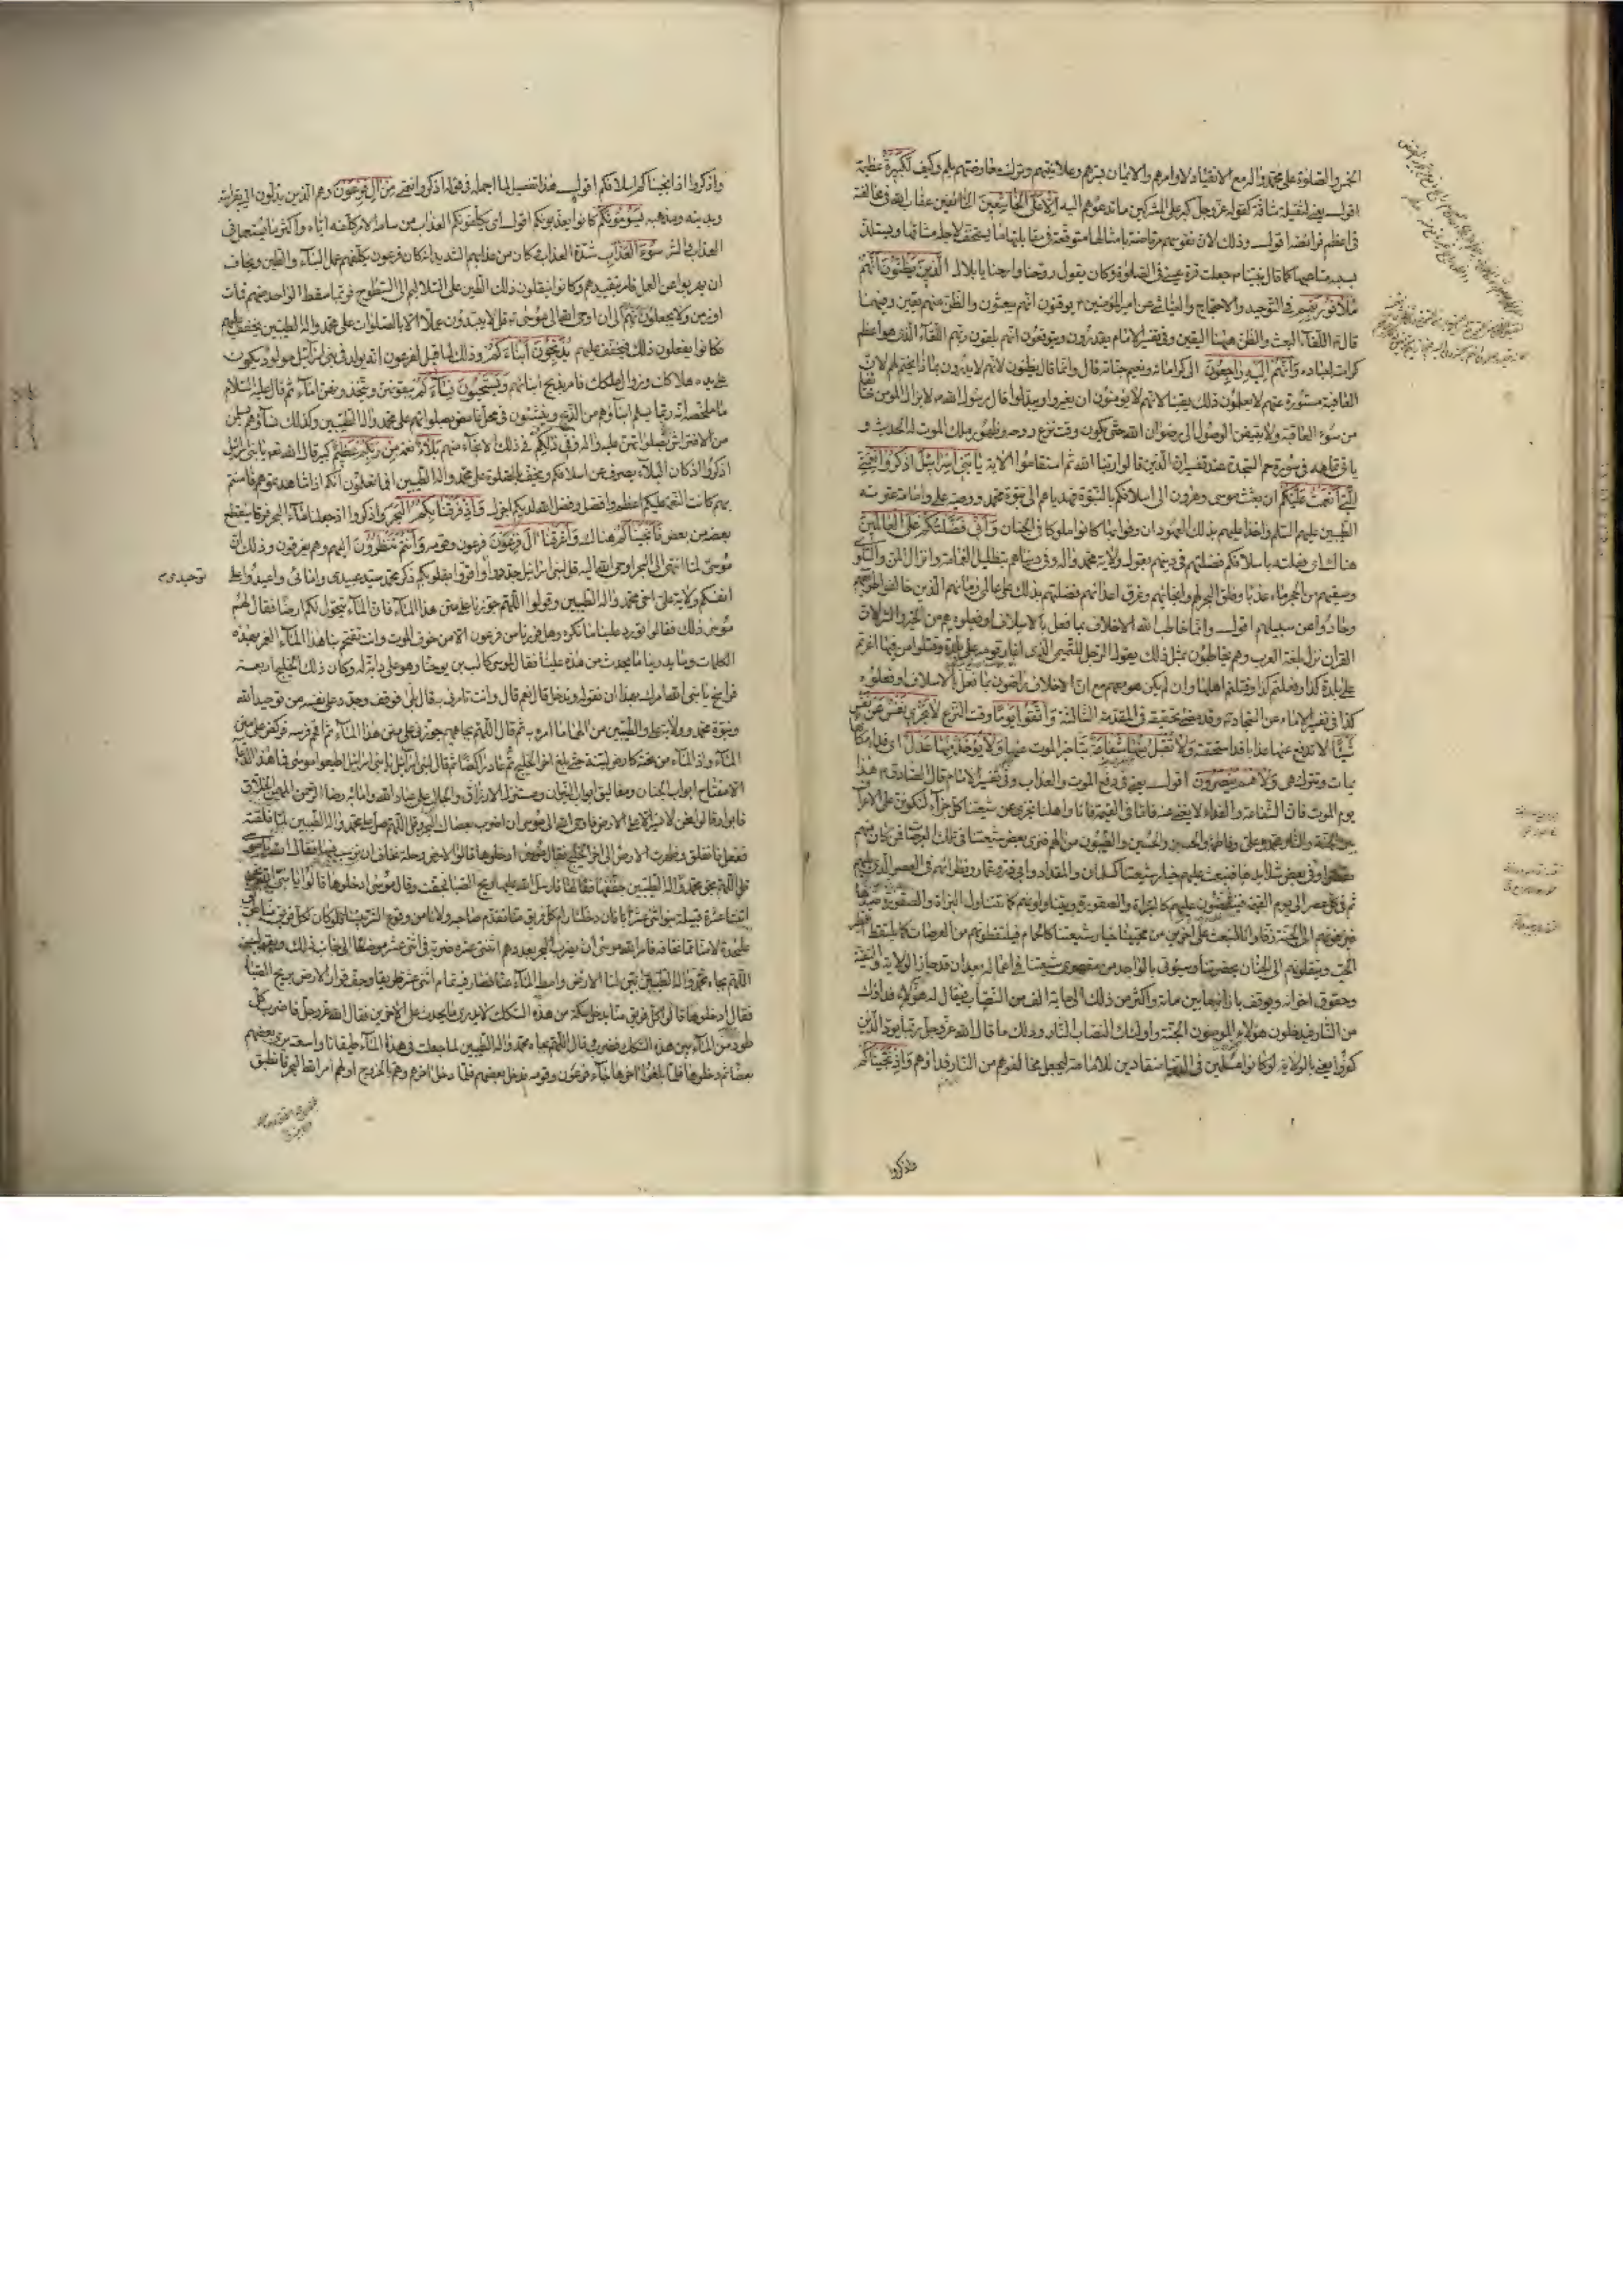 الخمس والصلوة على محمد وآله مع الانقياد لاوامرهم والايمان بسرهم وعلانيتهم وترك معارضتهم بلم وكيف لكبيرة عظيمة
اقول يعني لثقيلة شاقة كقوله عز وجل كبر على المشركين ما تدعوهم اليه الا على الخاشعين الخائفين عقاب الله في مخالفته
في اعظم فرائضه اقول وذلك لان نفوسهم مرتاضة بامثالها متوقعة في مقابلتها ما يستخف لاجله مشاقها ويستلذ
بسببه متاعبها كما قال نبينا جعلت قرة عيني في الصلوة وكان يقول روحنا وارحنا يا بلال الذين يظنون انهم
ملاقوا ربهم في التوحيد والاحتجاج والعياشي عن امير المؤمنين يوقنون انهم يبعثون والظن منهم يقين وفيهما
قال اللقاء البعث والظن ههنا اليقين وفي تفسير الامام يقدرون ويتوقعون انهم يلقون ربهم اللقاء الذي هو اعظم
كراماته لعباده وانهم اليه راجعون الى كراماته ونعيم جناته قال وانما قال يظنون لانهم لا يدرون بماذا يختم لهم لان
العاقبة مستورة عنهم لا يعلمون ذلك يقينا لانهم لا يؤمنون ان يغيروا ويبدلوا قال رسول الله لا يزال المؤمن خائفا
من سوء العاقبة ولا يتيقن الوصول الى رضوان الله حتى يكون وقت نزع روحه وظهور ملك الموت له الحديث و
يأتي تمامه في سورة حم السجدة عند تفسير ان الذين قالوا ربنا الله ثم استقاموا الاية يا بني اسرائيل اذكروا نعمتي
التي انعمت عليكم ان بعثت موسى وهرون الى اسلافكم بالنبوة فهدياهم الى نبوة محمد ووصية علي وامامة عترته
الطيبين عليهم السلم واخذا عليهم بذلك العهود ان وفوا بها كانوا ملوكا في الجنان واني فضلتكم على العالمين
هناك اي فعلته باسلافكم فضلتهم في دينهم بقبول ولاية محمد وآله وفي دنياهم بتظليل الغمامة وانزال المن والسلوى
وسقيهم من الحجر ماء عذبا وفلق البحر لهم وانجائهم وغرق اعدائهم فضلتهم بذلك على عالمي زمانهم الذين خالفوا طرايقهم
وحادوا عن سبيلهم اقول وانما خاطب الله الاخلاف بما فعل بالاسلاف او فعلوه هم من الخير والشر لان
القران نزل بلغة العرب وهم يخاطبون بمثل ذلك يقول الرجل للتميمي الذي اغار قومه على بلدة وقتلوا من فيها اغرتم
على بلدة كذا وفعلتم كذا وقتلتم اهلها وان لم يكن هو معهم مع ان الاخلاف راضون بما فعل بالاسلاف او فعلوه
كذا في تفسير الامام عن السجاد وقد مضى تحقيقه في المقدمة الثالثة واتقوا يوما وقت النزع لا تجزي نفس عن نفس
شيئا لا تدفع عنها عذابا قد استحقته ولا تقبل منها شفاعة بتاخير الموت عنها ولا يؤخذ منها عدل اي فداء مكانه
يمات وتترك هي ولا هم ينصرون اقول يعني في دفع الموت والعذاب وفي تفسير الامام قال الصادق هذا
يوم الموت فان الشفاعة والفداء لا يغني عنه فاما في القيمة فانا واهلنا نجزي عن شيعتنا كل جزاء لنكونن على الاعراف
بين الجنة والنار محمد وعلي وفاطمة والحسن والحسين والطيبون من آلهم فنرى بعض شيعتنا في تلك العرصات فمن كان منهم
مقصرا وفي بعض شدايدها فنبعث عليهم خيار شيعتنا كسلمان والمقداد وابي ذر وعمار ونظرائهم في العصر الذي يليهم
ثم في كل عصر الى يوم القيمة فينقضون عليهم كالبزاة والصقور ويتناولونهم كما تتناول البزاة والصقور صيدها
فيزفونهم الى الجنة زفا وانا لنبعث على اخرين من محبينا خيار شيعتنا كالحمام فيلتقطونهم من العرصات كما يلتقط الطير
الحب وينقلونهم الى الجنان بحضرتنا وسيؤتى بالواحد من مقصري شيعتنا في اعماله بعد ان قد حاز الولاية والتقية
وحقوق اخوانه ويوقف بازائه ما بين مائة واكثر من ذلك الى ماية الف من النصاب فيقال له هؤلاء فداؤك
من النار فيدخلون هؤلاء المؤمنون الجنة واولئك النصاب النار وذلك ما قال الله عز وجل ربما يود الذين
كفروا يعني بالولاية لو كانوا مسلمين في الدنيا منقادين للامامة ليجعل مخالفوهم من النار فداؤهم واذ نجيناكم
واذكروا
واذكروا اذ انجيناكم اسلافكم اقول هذا تفصيل لما اجمله في قوله اذكروا نعمتي من آل فرعون وهم الذين يدلون اليه بقرابته
وبدينه ومذهبه يسومونكم كانوا يعذبونكم اقول اي يكلفونكم العذاب من سامه الامر كلفه اياه واكثر ما يستعمل في
العذاب والشر سوء العذاب شدة العذاب كان من عذابهم الشديد انه كان فرعون يكلفهم عمل البناء والطين ويخاف
ان يهربوا عن العمل فامر بتقييدهم وكانوا ينقلون ذلك الطين على السلاليم الى السطوح فربما سقط الواحد منهم فمات
او زمن ولا يحفلون بهم الى ان اوحى الله الى موسى قل لهم لا يبتدؤن عملا الا بالصلوات على محمد وآله الطيبين ليخفف عليهم
فكانوا يفعلون ذلك فيخفف عليهم يذبحون ابناءكم وذلك لما قيل لفرعون انه يولد في بني اسرائيل مولود يكون
على يده هلاكك وزوال ملكك فامر بذبح ابنائهم ويستحيون نساءكم يبقونهن ويتخذونهن اماء ثم قال عليه السلام
ما ملخصه انه ربما يسلم ابناؤهم من الذبح وينشئون في محل غامض بصلواتهم على محمد وآله الطيبين وكذلك نساؤهم يسلمن
من الافتراش بصلواتهن عليه وآله وفي ذلكم في ذلك الانجاء منهم بلاء نعمة من ربكم عظيم كبير قال الله تعم يا بني اسرائيل
اذكروا اذ كان البلاء يصرف عن اسلافكم ويخفف بالصلوة على محمد وآله الطيبين افما تعلمون انكم اذا شاهدتموهم فامنتم
بهم كانت النعمة عليكم اعظم وافضل وفضل الله لديكم اجزل واذ فرقنا بكم البحر واذكروا اذ جعلنا ماء البحر فرقا ينقطع
بعضه من بعض فانجيناكم هناك واغرقنا آل فرعون فرعون وقومه وانتم تنظرون اليهم وهم يغرقون وذلك ان
موسى لما انتهى الى البحر اوحى الله اليه قل لبني اسرائيل جددوا توحيدي واقروا بقلوبكم ذكر محمد سيد عبيدي وامائي واعيدوا على
توحيدي
انفسكم ولاية علي اخي محمد وآله الطيبين وقولوا اللهم جوزنا على متن هذا الماء فان الماء يتحول لكم ارضا فقال لهم
موسى ذلك فقالوا تورد علينا ما نكره وهل فررنا من فرعون الا من خوف الموت وانت تقتحم بنا هذا الماء الغمر بهذه
الكلمات وما يدرينا ما يحدث من هذه علينا فقال لموسى كالب بن يوحنا وهو على دابة له وكان ذلك الخليج اربعة
فراسخ يا نبي الله امرك الله بهذا ان نقوله وندخل قال نعم قال وانت تامرني به قال بلى فوقف وجدد على نفسه من توحيد الله
ونبوة محمد وولاية علي والطيبين من آلهما ما امر به ثم قال اللهم بجاههم جوزني على متن هذا الماء ثم اقحم فرسه فركض على متن
الماء واذا الماء من تحته كارض لينة حتى بلغ اخر الخليج ثم عاد راكضا ثم قال لبني اسرائيل يا بني اسرائيل اطيعوا موسى فما هذا الدعاء
الا مفتاح ابواب الجنان ومغاليق ابواب النيران ومستنزل الارزاق والجالب على عباد الله وامائه رضا الرحمن المهيمن الخلاق
فابوا وقالوا نحن لا نسير الا على الارض فاوحى الله الى موسى ان اضرب بعصاك البحر وقل اللهم صل على محمد وآله الطيبين لما فلقته
ففعل فانفلق وظهرت الارض الى اخر الخليج فقال موسى ادخلوها قالوا الارض وحلة نخاف ان نرسب فيها فقال الله يا موسى
قل اللهم بحق محمد وآله الطيبين جففها فقالها فارسل الله عليها ريح الصبا فجفت وقال موسى ادخلوها قالوا يا نبي الله نحن
اثنتا عشرة قبيلة بنو اثني عشر ابا فان دخلنا رام كل فريق منا تقدم صاحبه ولا نامن وقوع الشر بيننا فلو كان لكل فريق منا طريق
على حدة لامنا مما نخافه فامر الله موسى ان يضرب البحر بعددهم اثنتي عشرة ضربة في اثني عشر موضعا الى جانب ذلك ويقول
اللهم بجاه محمد وآله الطيبين بين لنا الارض وامط الماء عنا فصار فيه تمام اثني عشر طريقا وجف قرار الارض بريح الصبا
فقال ادخلوها قالوا كل فريق منا يدخل سكة من هذه السكك لا يدري ما يحدث على الاخرين فقال الله عز وجل فاضرب كل
طود من الماء بين هذه السكك فضرب وقال اللهم بجاه محمد وآله الطيبين لما جعلت في هذا الماء طيقانا واسعة يرى بعضهم
بعضا ثم دخلوها فلما بلغوا اخرها جاء فرعون وقومه فدخل بعضهم فلما دخل اخرهم وهم بالخروج اولهم امر الله البحر فانطبق